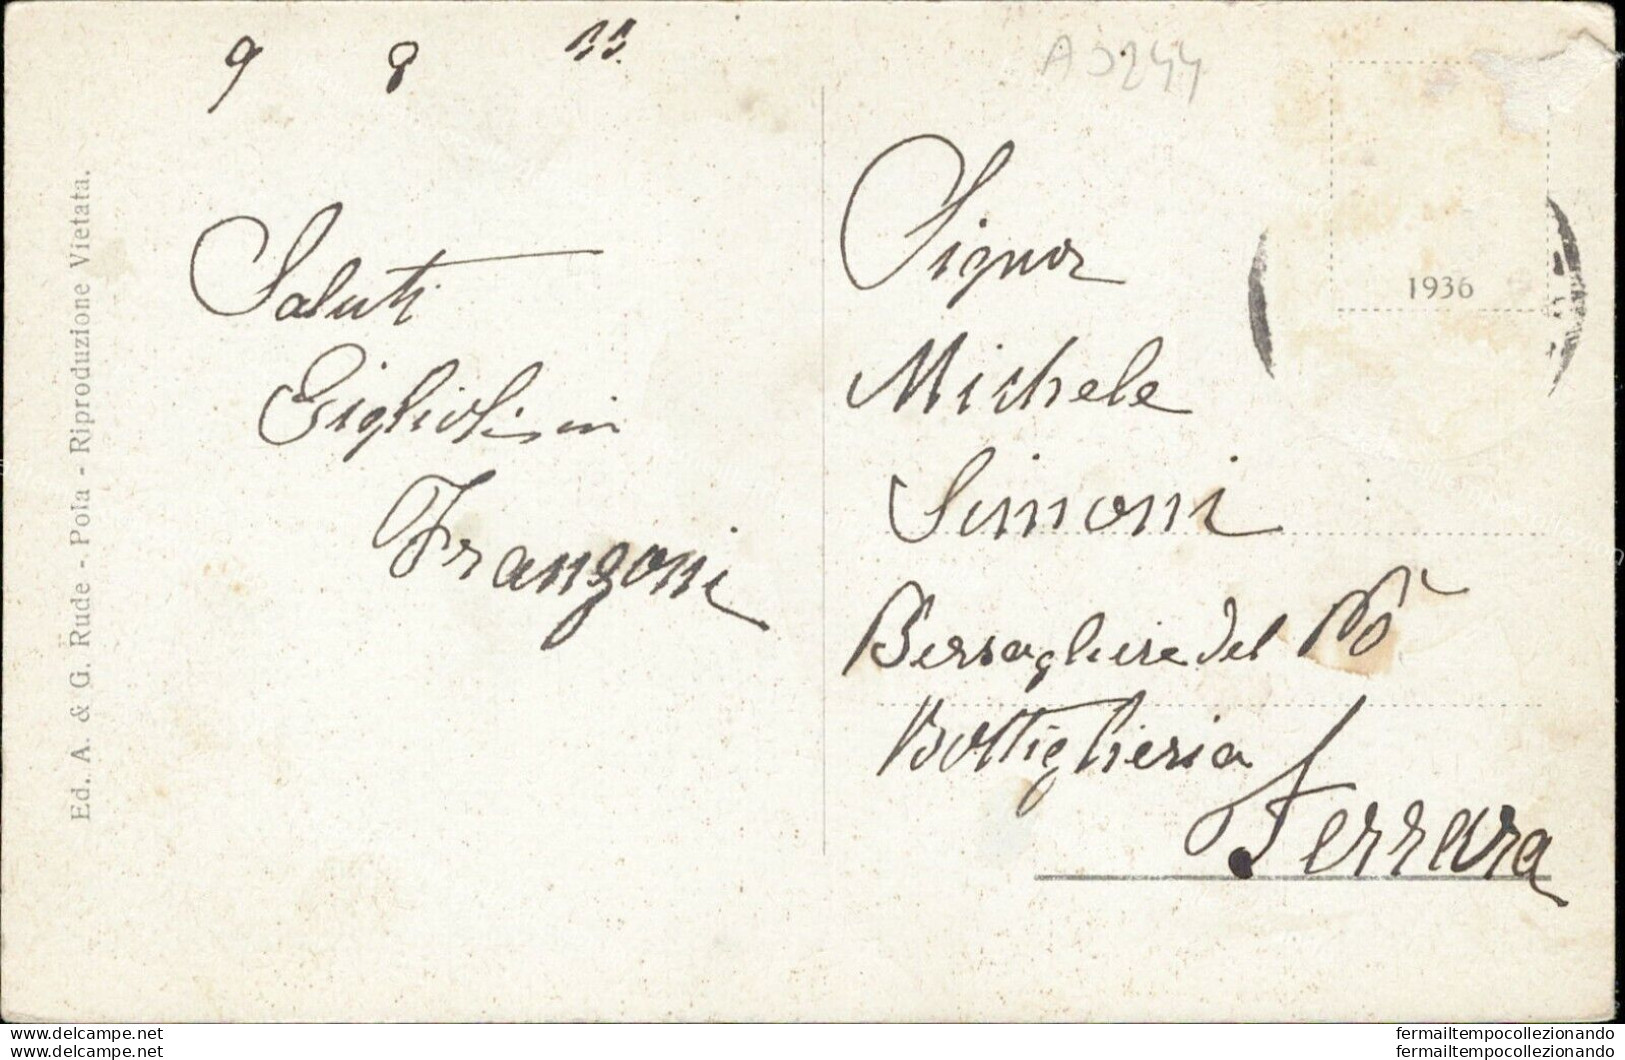 9 8 33.
Saluti
Gigliolis in
Frangoni
Ed. A. & G. Rude - Pola - Riproduzione Vietata.
1936
Signor
Michele
Simoni
Bersagliere del Pò
Bottiglieria
Ferrara
www.delcampe.net
www.delcampe.net
fermailtempocollezionando
fermailtempocollezionando